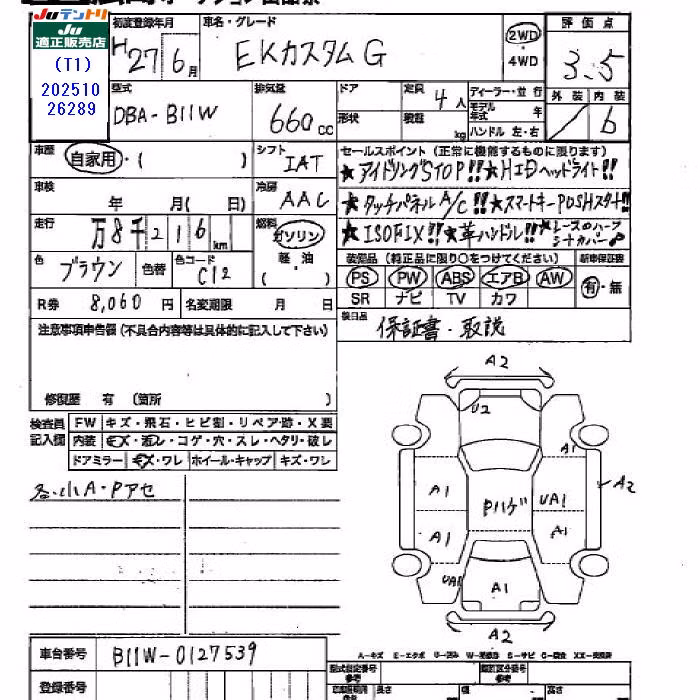 Juテントリ
Ju
適正販売店
(T1)
202510
26289
初度登録年月
H27年6月
車名・グレード
EKカスタムG
2WD
4WD
評価点
3.5
外装 内装
b
型式
DBA-B11W
排気量
660cc
ドア
形状
定員 4人
積載 kg
ディーラー・並行
モデル年式 年
ハンドル 左・右
車歴
自家用・( )
シフト
IAT
セールスポイント(正常に機能するものに限ります)
★アイドリングSTOP!!★HIDヘッドライト!!
★タッチパネルA/C!!★スマートキーPUSHスタート!!
★ISOFIX!!★革ハンドル!!★レースのハーフシートカバー
車検
年 月( 日)
冷房
AAC
走行
万8千216km
燃料
ガソリン
軽・油
( )
色
ブラウン
色替
色コード
C12
装備品(純正品に限り○をつけてください)
新車保証書
PS PW ABS エアB AW
有・無
SR ナビ TV カワ
R券 8,060円
名変期限 月 日
欠品
保証書・取説
注意事項申告欄(不具合内容等は具体的に記入して下さい)
修復歴 有 (箇所 )
検査員
記入欄
FW キズ・飛石・ヒビ割・リペア跡・X要
内装 キズ・汚レ・コゲ・穴・スレ・ヘタリ・破レ
ドアミラー キズ・ワレ ホイール・キャップ キズ・ワレ
各・小A・Pアセ
A2
U2
A1
A1
Pハゲ
UA1
A2
A1
A1
UA1
A1
A2
A-キズ E-エクボ U-凹み W-補修跡 S-サビ C-腐食 XX-交換済
車台番号
B11W-0127539
登録番号
型式指定番号
類別区分番号
長さ 幅 高さ